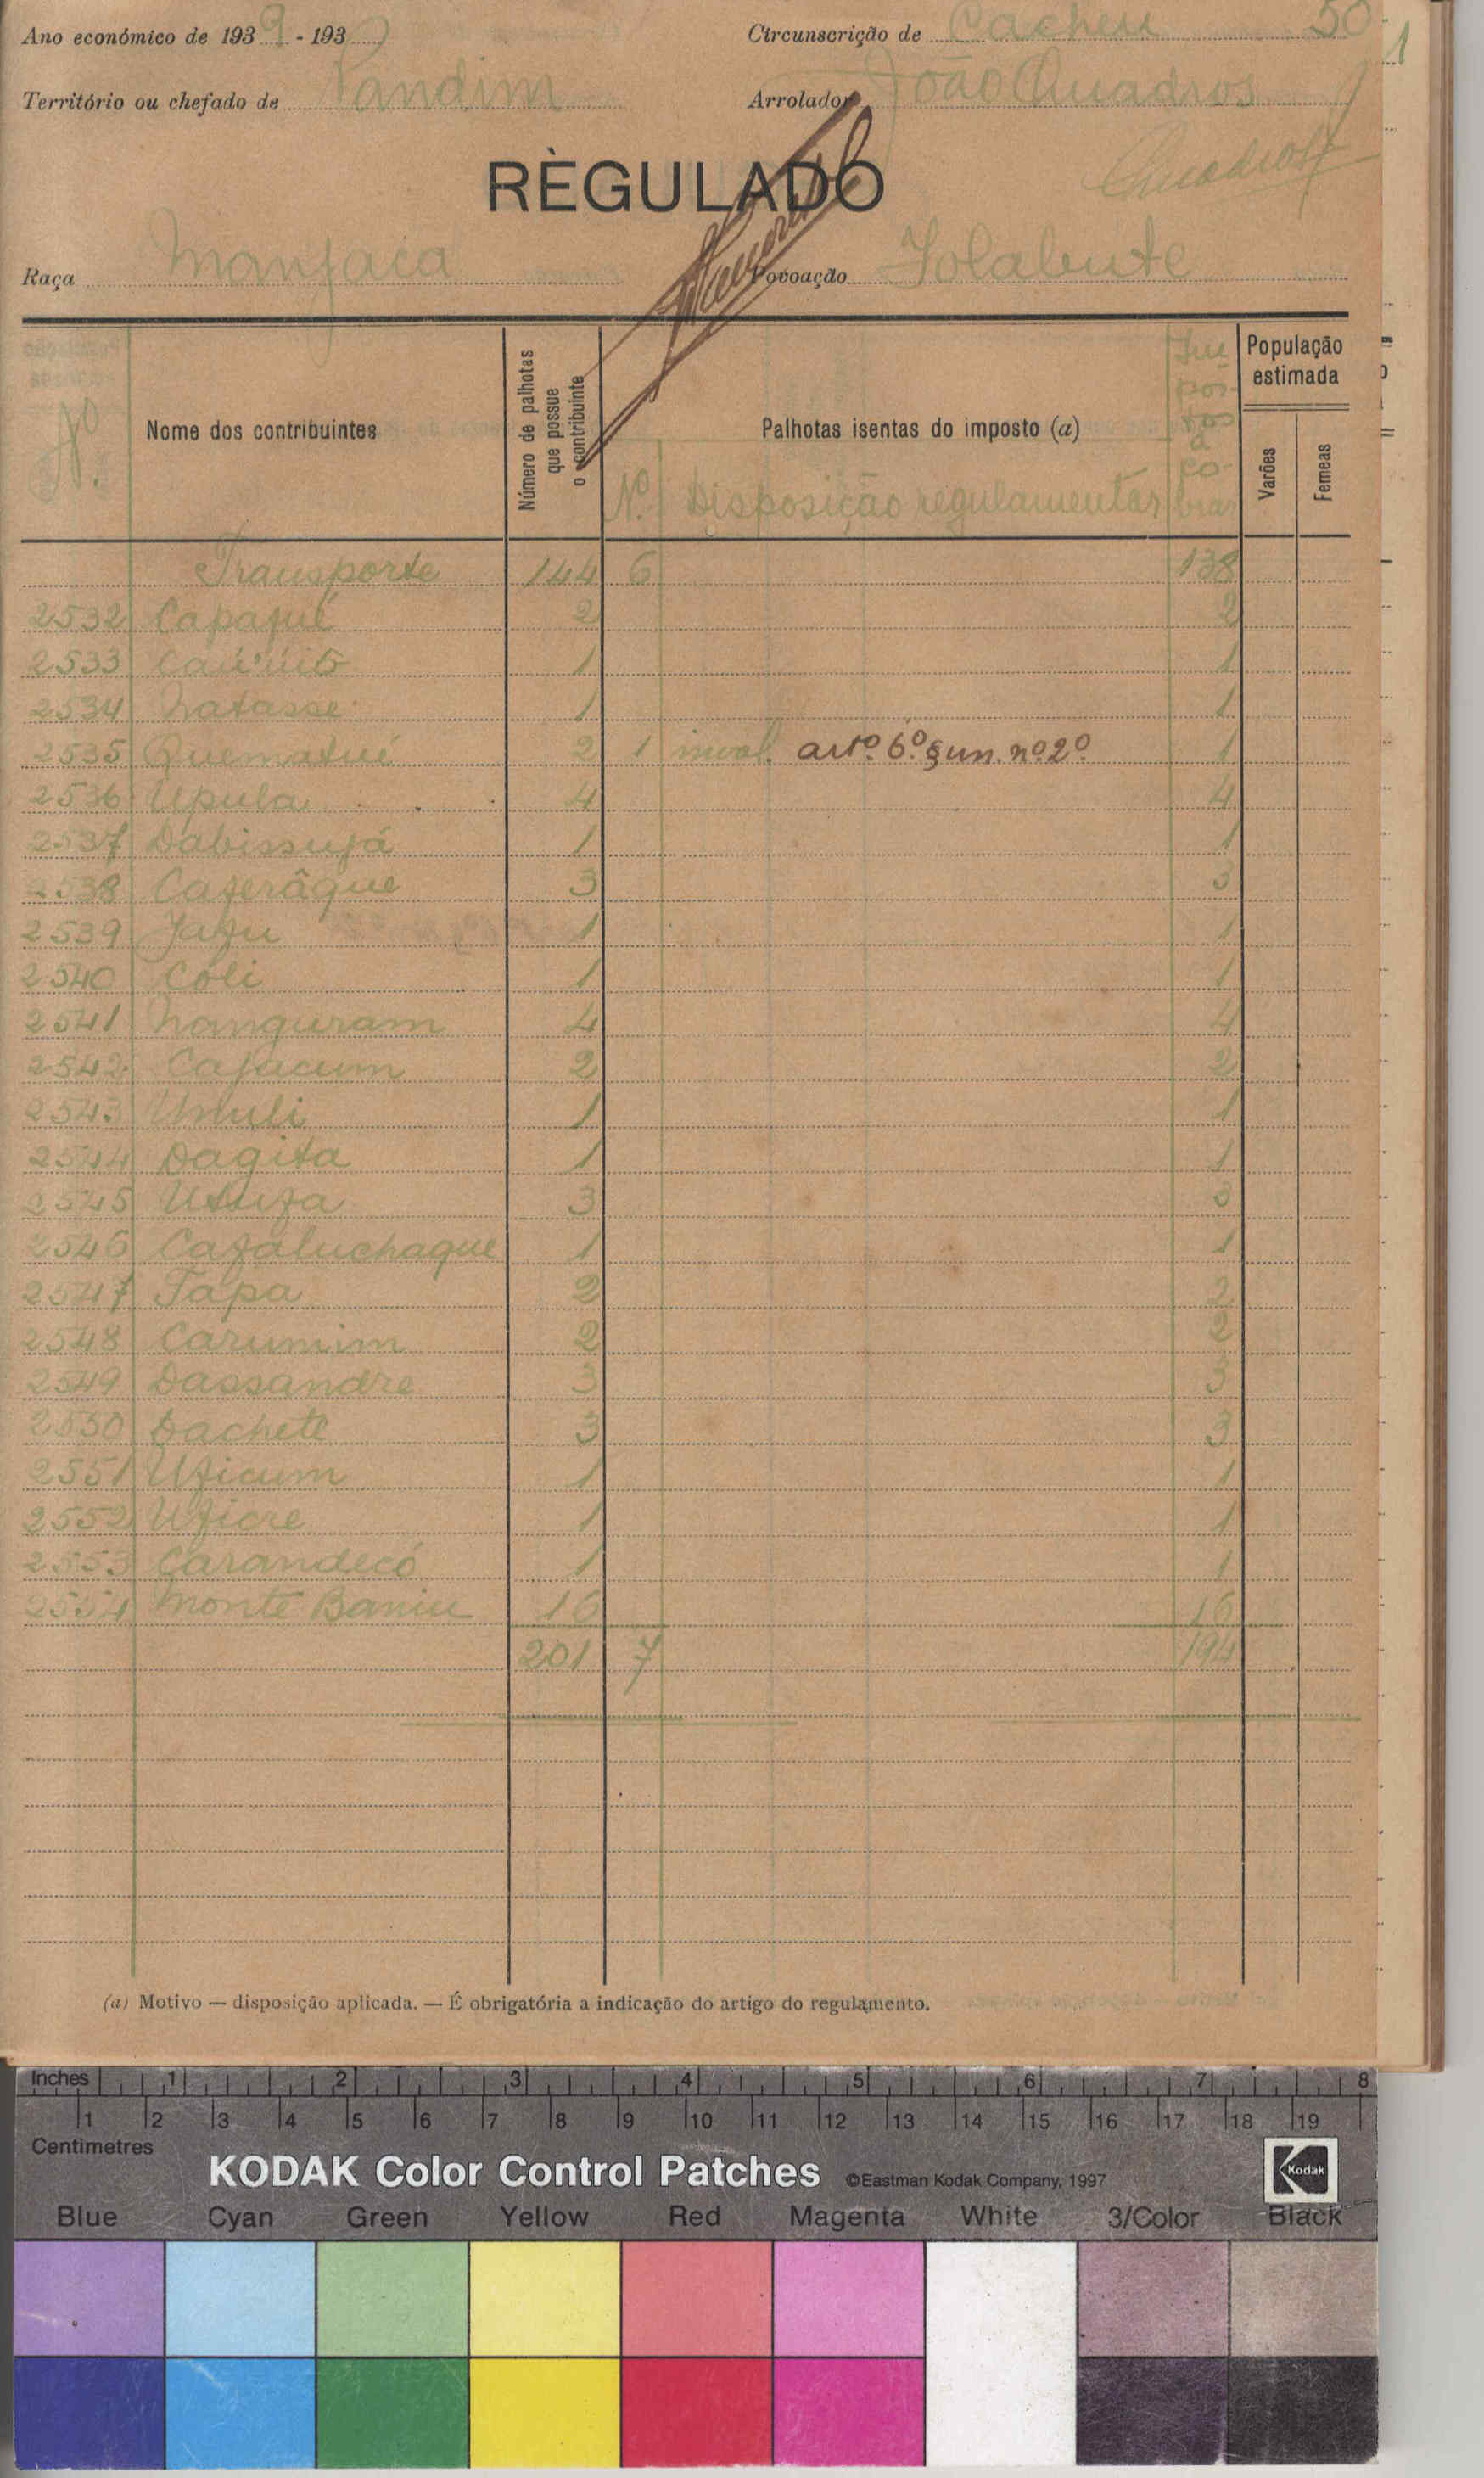 Ano económico de 1939 - 193
Circunscrição de Cacheu 50
Território ou chefado de Pandim
Arrolador João Quadros
RÈGULADO
Quadros
Raça Manjaca
Povoação
Nº
Nome dos contribuintes
Número de palhotas que possue o contribuinte
Palhotas isentas do imposto (a)
Nº. Disposição regulamentar
Impostos a cobrar
População estimada
Varões
Femeas
Transporte 144 6 138
2532 Capafué 2 2
2533 1 1
2534 Natasse 1 1
2535 Quematué 2 1 inval. artº. 6º. § un. nº 2º 1
2536 Upula 4 4
2537 Dabissujá 1 1
2538 Caferâque 3 3
2539 Jafu 1 1
2540 Coli 1 1
2541 Nanguram 4 4
2542 Cafacum 2 2
2543 1 1
2544 Dagita 1 1
2545 3 3
2546 Cafaluchaque 1 1
2547 Tapa 2 2
2548 Carumim 2 2
2549 Dassandre 3 3
2550 Dachete 3 3
2551 Uficum 1 1
2552 Uficre 1 1
2553 Carandecó 1 1
2554 Monte Baniu 16 16
201 7 194
(a) Motivo — disposição aplicada. — É obrigatória a indicação do artigo do regulamento.
Inches 1 2 3 4 5 6 7 8
1 2 3 4 5 6 7 8 9 10 11 12 13 14 15 16 17 18 19
Centimetres
KODAK Color Control Patches ©Eastman Kodak Company, 1997 Kodak
Blue Cyan Green Yellow Red Magenta White 3/Color Black